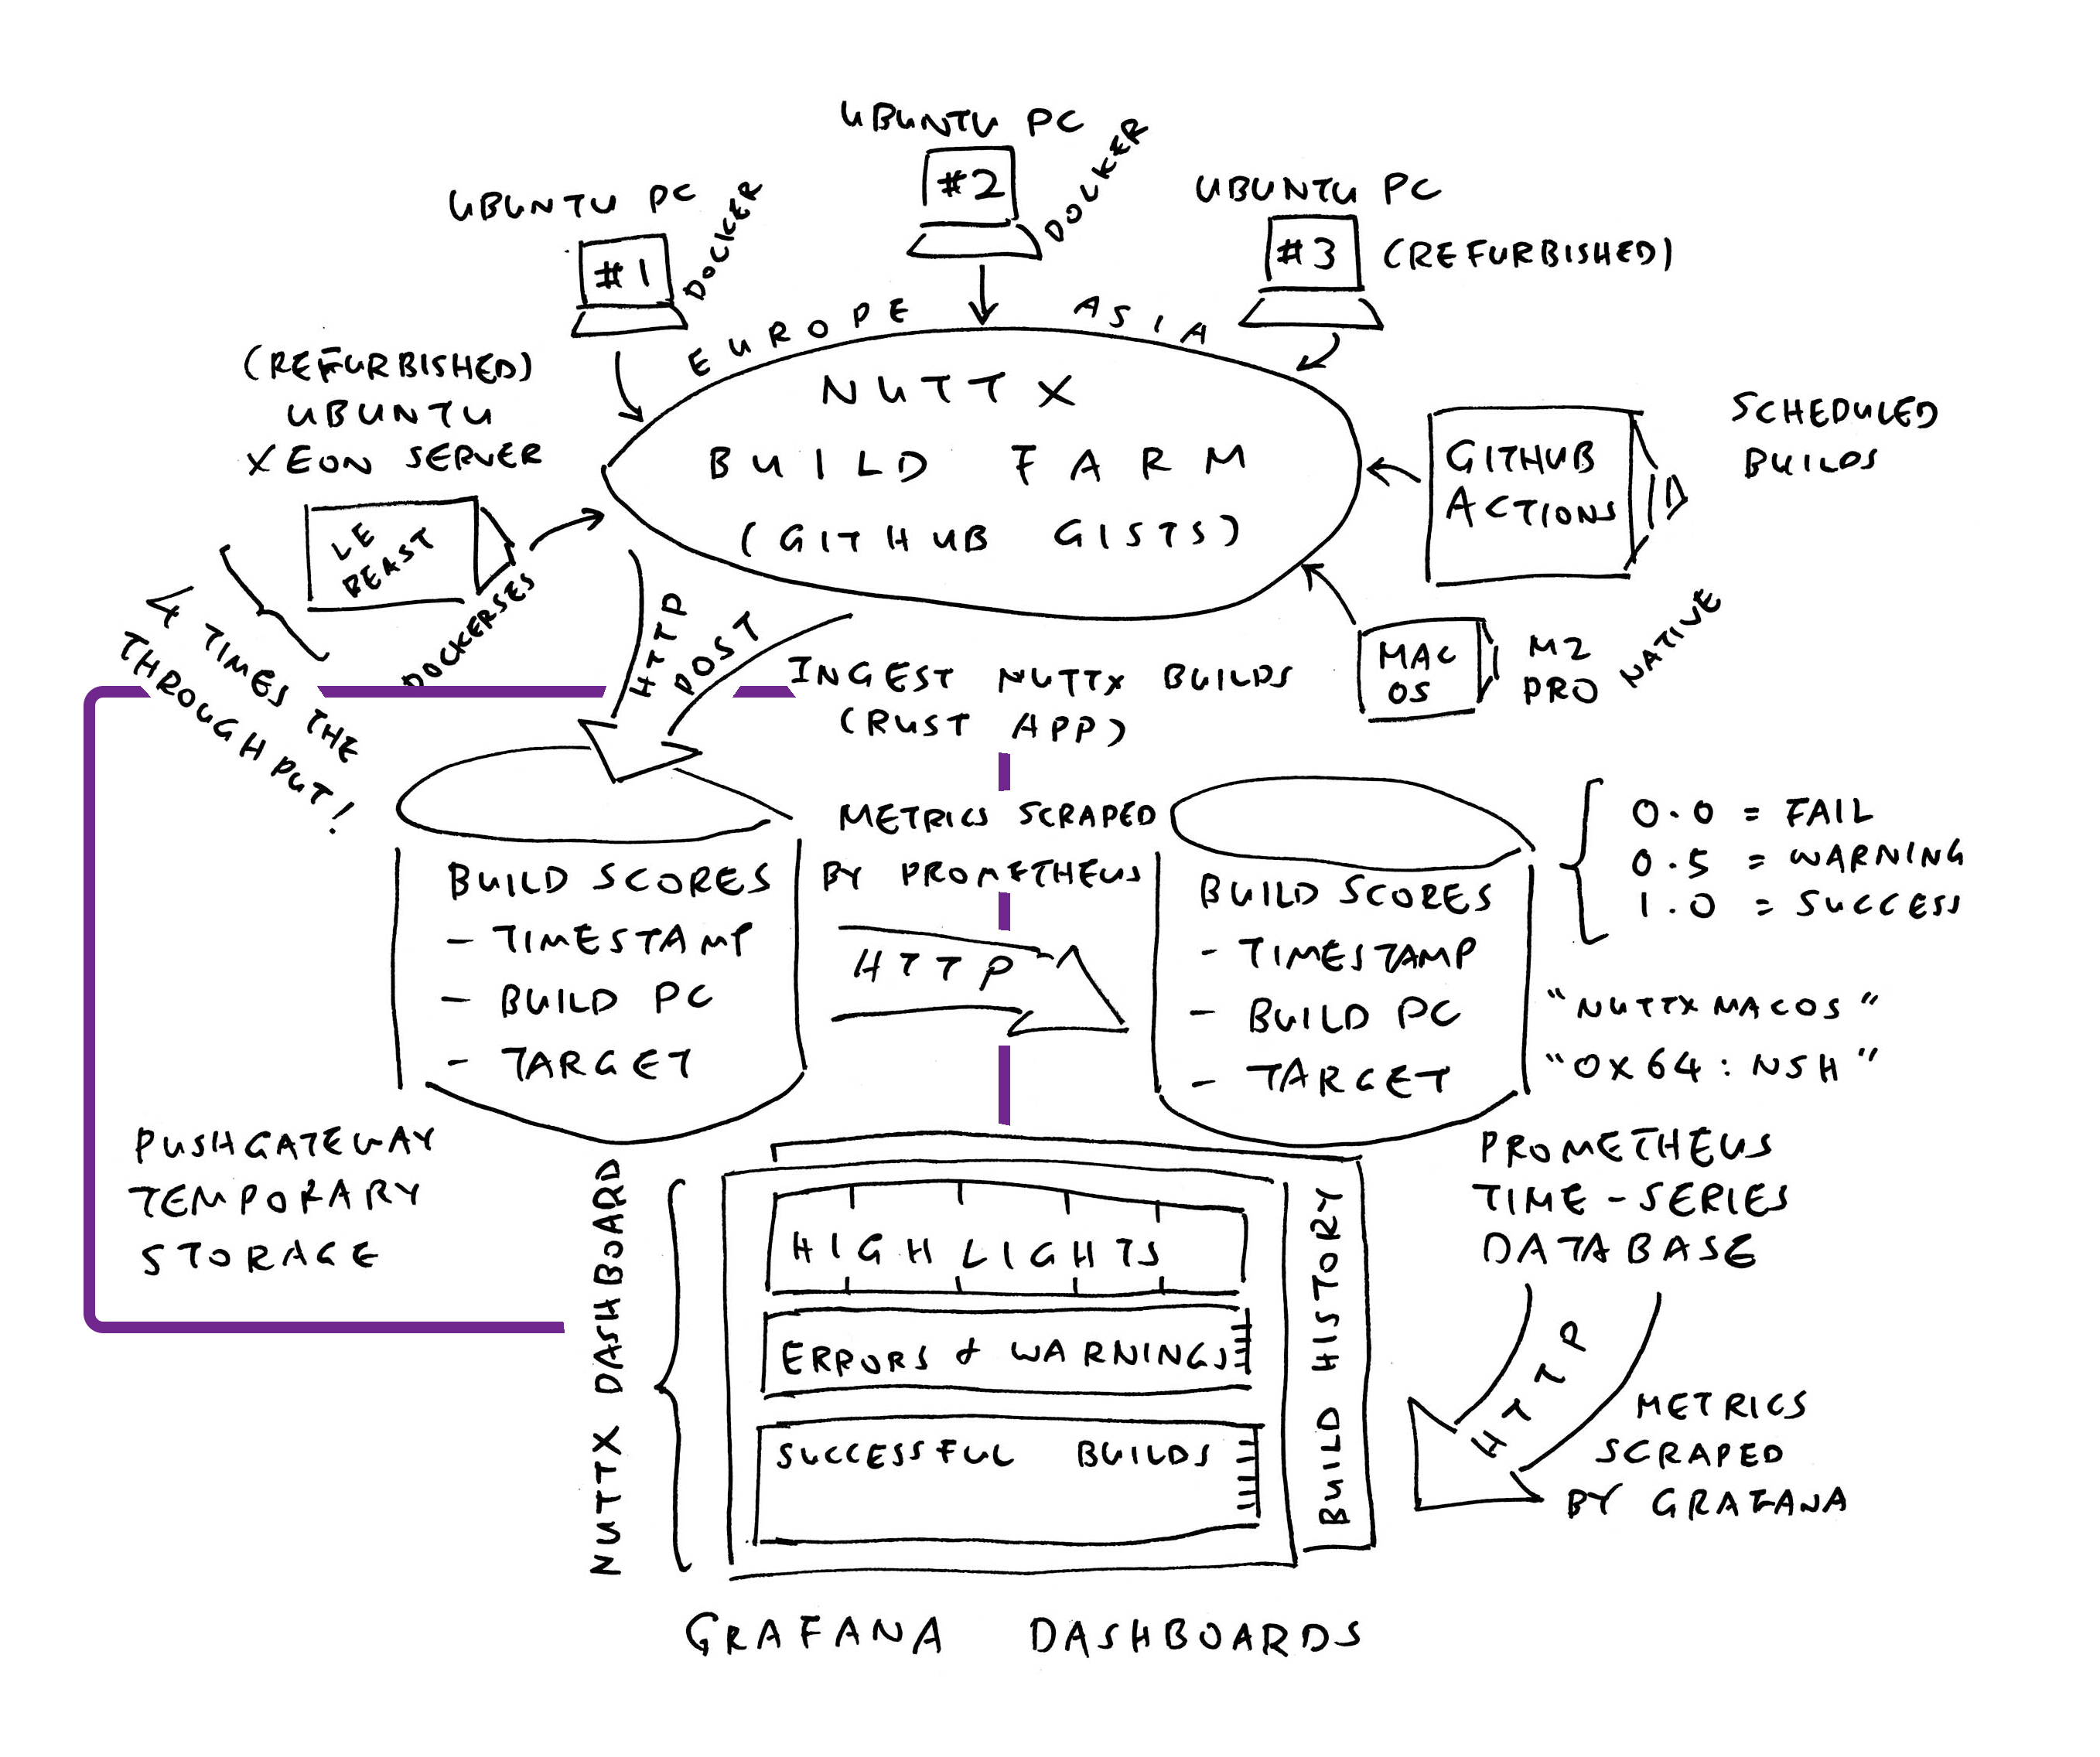 UBUNTU PC
#1
DOCKER
UBUNTU PC
#2
DOCKER
UBUNTU PC
#3
(REFURBISHED)
EUROPE
ASIA
(REFURBISHED)
UBUNTU
XEON SERVER
LE
BEAST
DOCKERSES
4 TIMES THE
THROUGHPUT!
NUTTX
BUILD FARM
(GITHUB GISTS)
GITHUB
ACTIONS
SCHEDULED
BUILDS
MAC
OS
M2
PRO
NATIVE
HTTP
POST
INGEST NUTTX BUILDS
(RUST APP)
BUILD SCORES
- TIMESTAMP
- BUILD PC
- TARGET
PUSHGATEWAY
TEMPORARY
STORAGE
METRICS SCRAPED
BY PROMETHEUS
HTTP
BUILD SCORES
- TIMESTAMP
- BUILD PC
- TARGET
0.0 = FAIL
0.5 = WARNING
1.0 = SUCCESS
"NUTTXMACOS"
"OX64:NSH"
PROMETHEUS
TIME-SERIES
DATABASE
HTTP
METRICS
SCRAPED
BY GRAFANA
NUTTX DASHBOARD
HIGHLIGHTS
ERRORS & WARNINGS
SUCCESSFUL BUILDS
BUILD HISTORY
GRAFANA DASHBOARDS